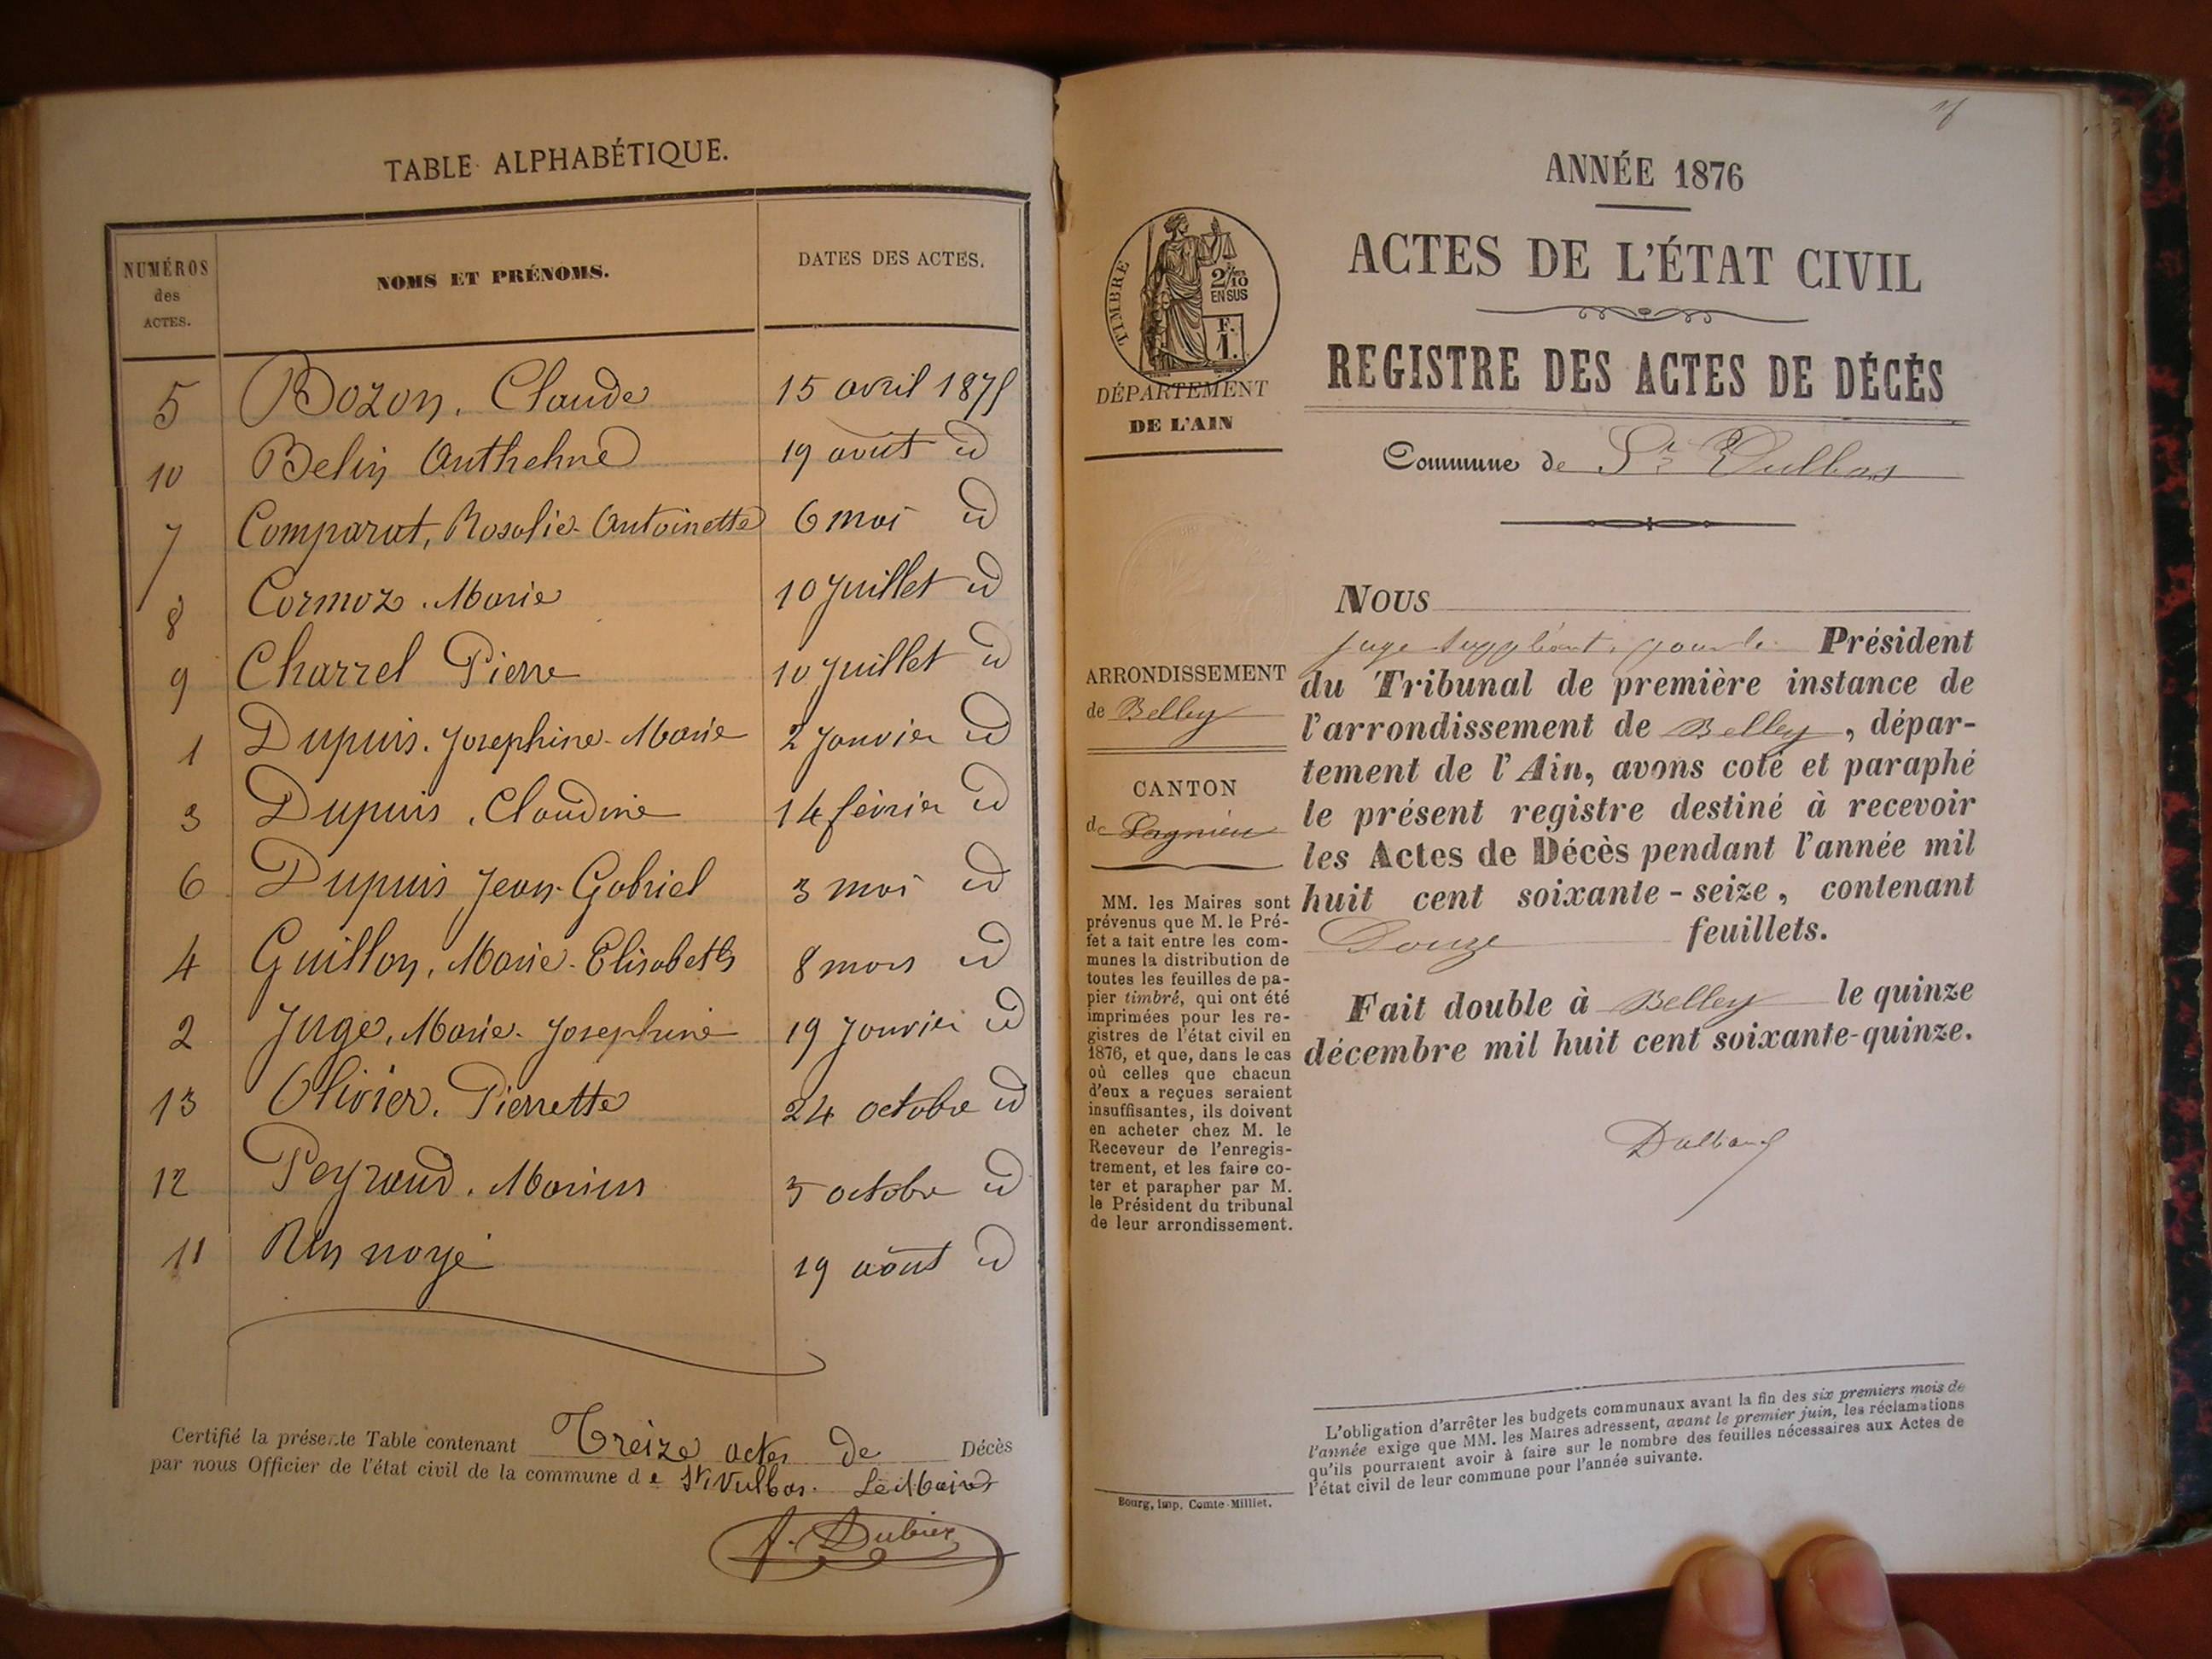 TABLE ALPHABÉTIQUE.
NUMÉROS des ACTES.
NOMS ET PRÉNOMS.
DATES DES ACTES.
5 Bozon, Claude 15 avril 1875
10 Belin Anthelme 19 août id
7 Comparat, Rosalie-Antoinette 6 mai id
8 Cormoz. Marie 10 Juillet id
9 Charrel Pierre 10 Juillet id
1 Dupuis. Josephine-Marie 2 Janvier id
3 Dupuis, Claudine 14 février id
6 Dupuis Jean-Gabriel 3 mai id
4 Guillon, Marie-Elisabeth 8 mars id
2 Juge, Marie-Josephine 19 Janvier id
13 Olivier. Pierrette 24 octobre id
12 Peyraud. Marius 5 octobre id
11 Un noyé 19 août id
Certifié la présente Table contenant Treize actes de Décès
par nous Officier de l'état civil de la commune de St Vulbas. Le Maire
f. Dubier
ANNÉE 1876
ACTES DE L'ÉTAT CIVIL
REGISTRE DES ACTES DE DÉCÈS
Commune de St Vulbas
TIMBRE
2/10
EN SUS
F.
1.
DÉPARTEMENT
DE L'AIN
ARRONDISSEMENT
de Belley
CANTON
de Lagnieu
MM. les Maires sont
prévenus que M. le Pré-
fet a fait entre les com-
munes la distribution de
toutes les feuilles de pa-
pier timbré, qui ont été
imprimées pour les re-
gistres de l'état civil en
1876, et que, dans le cas
où celles que chacun
d'eux a reçues seraient
insuffisantes, ils doivent
en acheter chez M. le
Receveur de l'enregis-
trement, et les faire co-
ter et parapher par M.
le Président du tribunal
de leur arrondissement.
Bourg, imp. Comte-Milliet.
NOUS
juge suppléant, pour le Président
du Tribunal de première instance de
l'arrondissement de Belley, dépar-
tement de l'Ain, avons coté et paraphé
le présent registre destiné à recevoir
les Actes de Décès pendant l'année mil
huit cent soixante-seize, contenant
Douze feuillets.
Fait double à Belley le quinze
décembre mil huit cent soixante-quinze.
L'obligation d'arrêter les budgets communaux avant la fin des six premiers mois de
l'année exige que MM. les Maires adressent, avant le premier juin, les réclamations
qu'ils pourraient avoir à faire sur le nombre des feuilles nécessaires aux Actes de
l'état civil de leur commune pour l'année suivante.